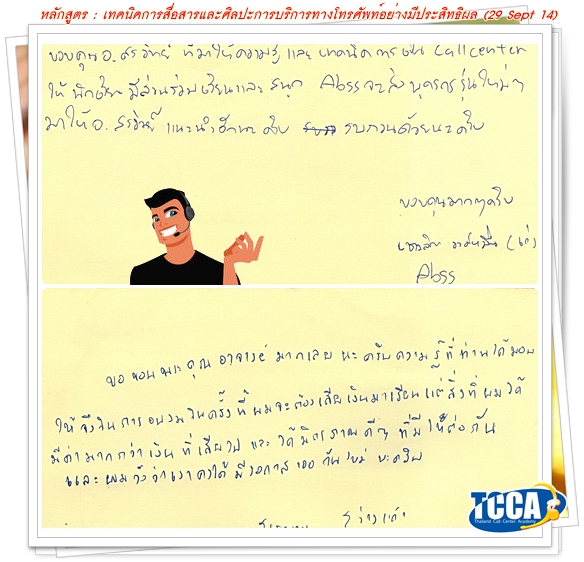 หลักสูตร : เทคนิคการสื่อสารและศิลปะการบริการทางโทรศัพท์อย่างมีประสิทธิผล (29 Sept 14)
ขอบคุณ อ. สรวิทย์ ที่มาให้ความรู้ และ เทคนิค การเป็น Callcenter
ให้ นักเรียน มีส่วนร่วมเรียนและ สนุก Abss จะส่ง บุคกรรุ่นใหม่ๆ
มาให้ อ. แนะนำอีกนะครับ รบกวนด้วยนะครับ
ขอบคุณมากๆครับ
Abss
ขอขอบพระคุณ อาจารย์ มากเลย นะ ครับความรู้ที่ท่านได้มอบ
ให้ ถึงในการอบรมในครั้งนี้ ผมจะต้องเสียเงินมาเรียนแต่สิ่งที่ ผมได้
มีค่ามากกว่าเงิน ที่เสียไป และ ได้มิตรภาพดีๆ ที่มีให้ต่อกัน
และผมหวังว่าเราคงได้ มีโอกาสเจอกันใหม่ นะครับ
TCCA
Thailand Call Center Academy